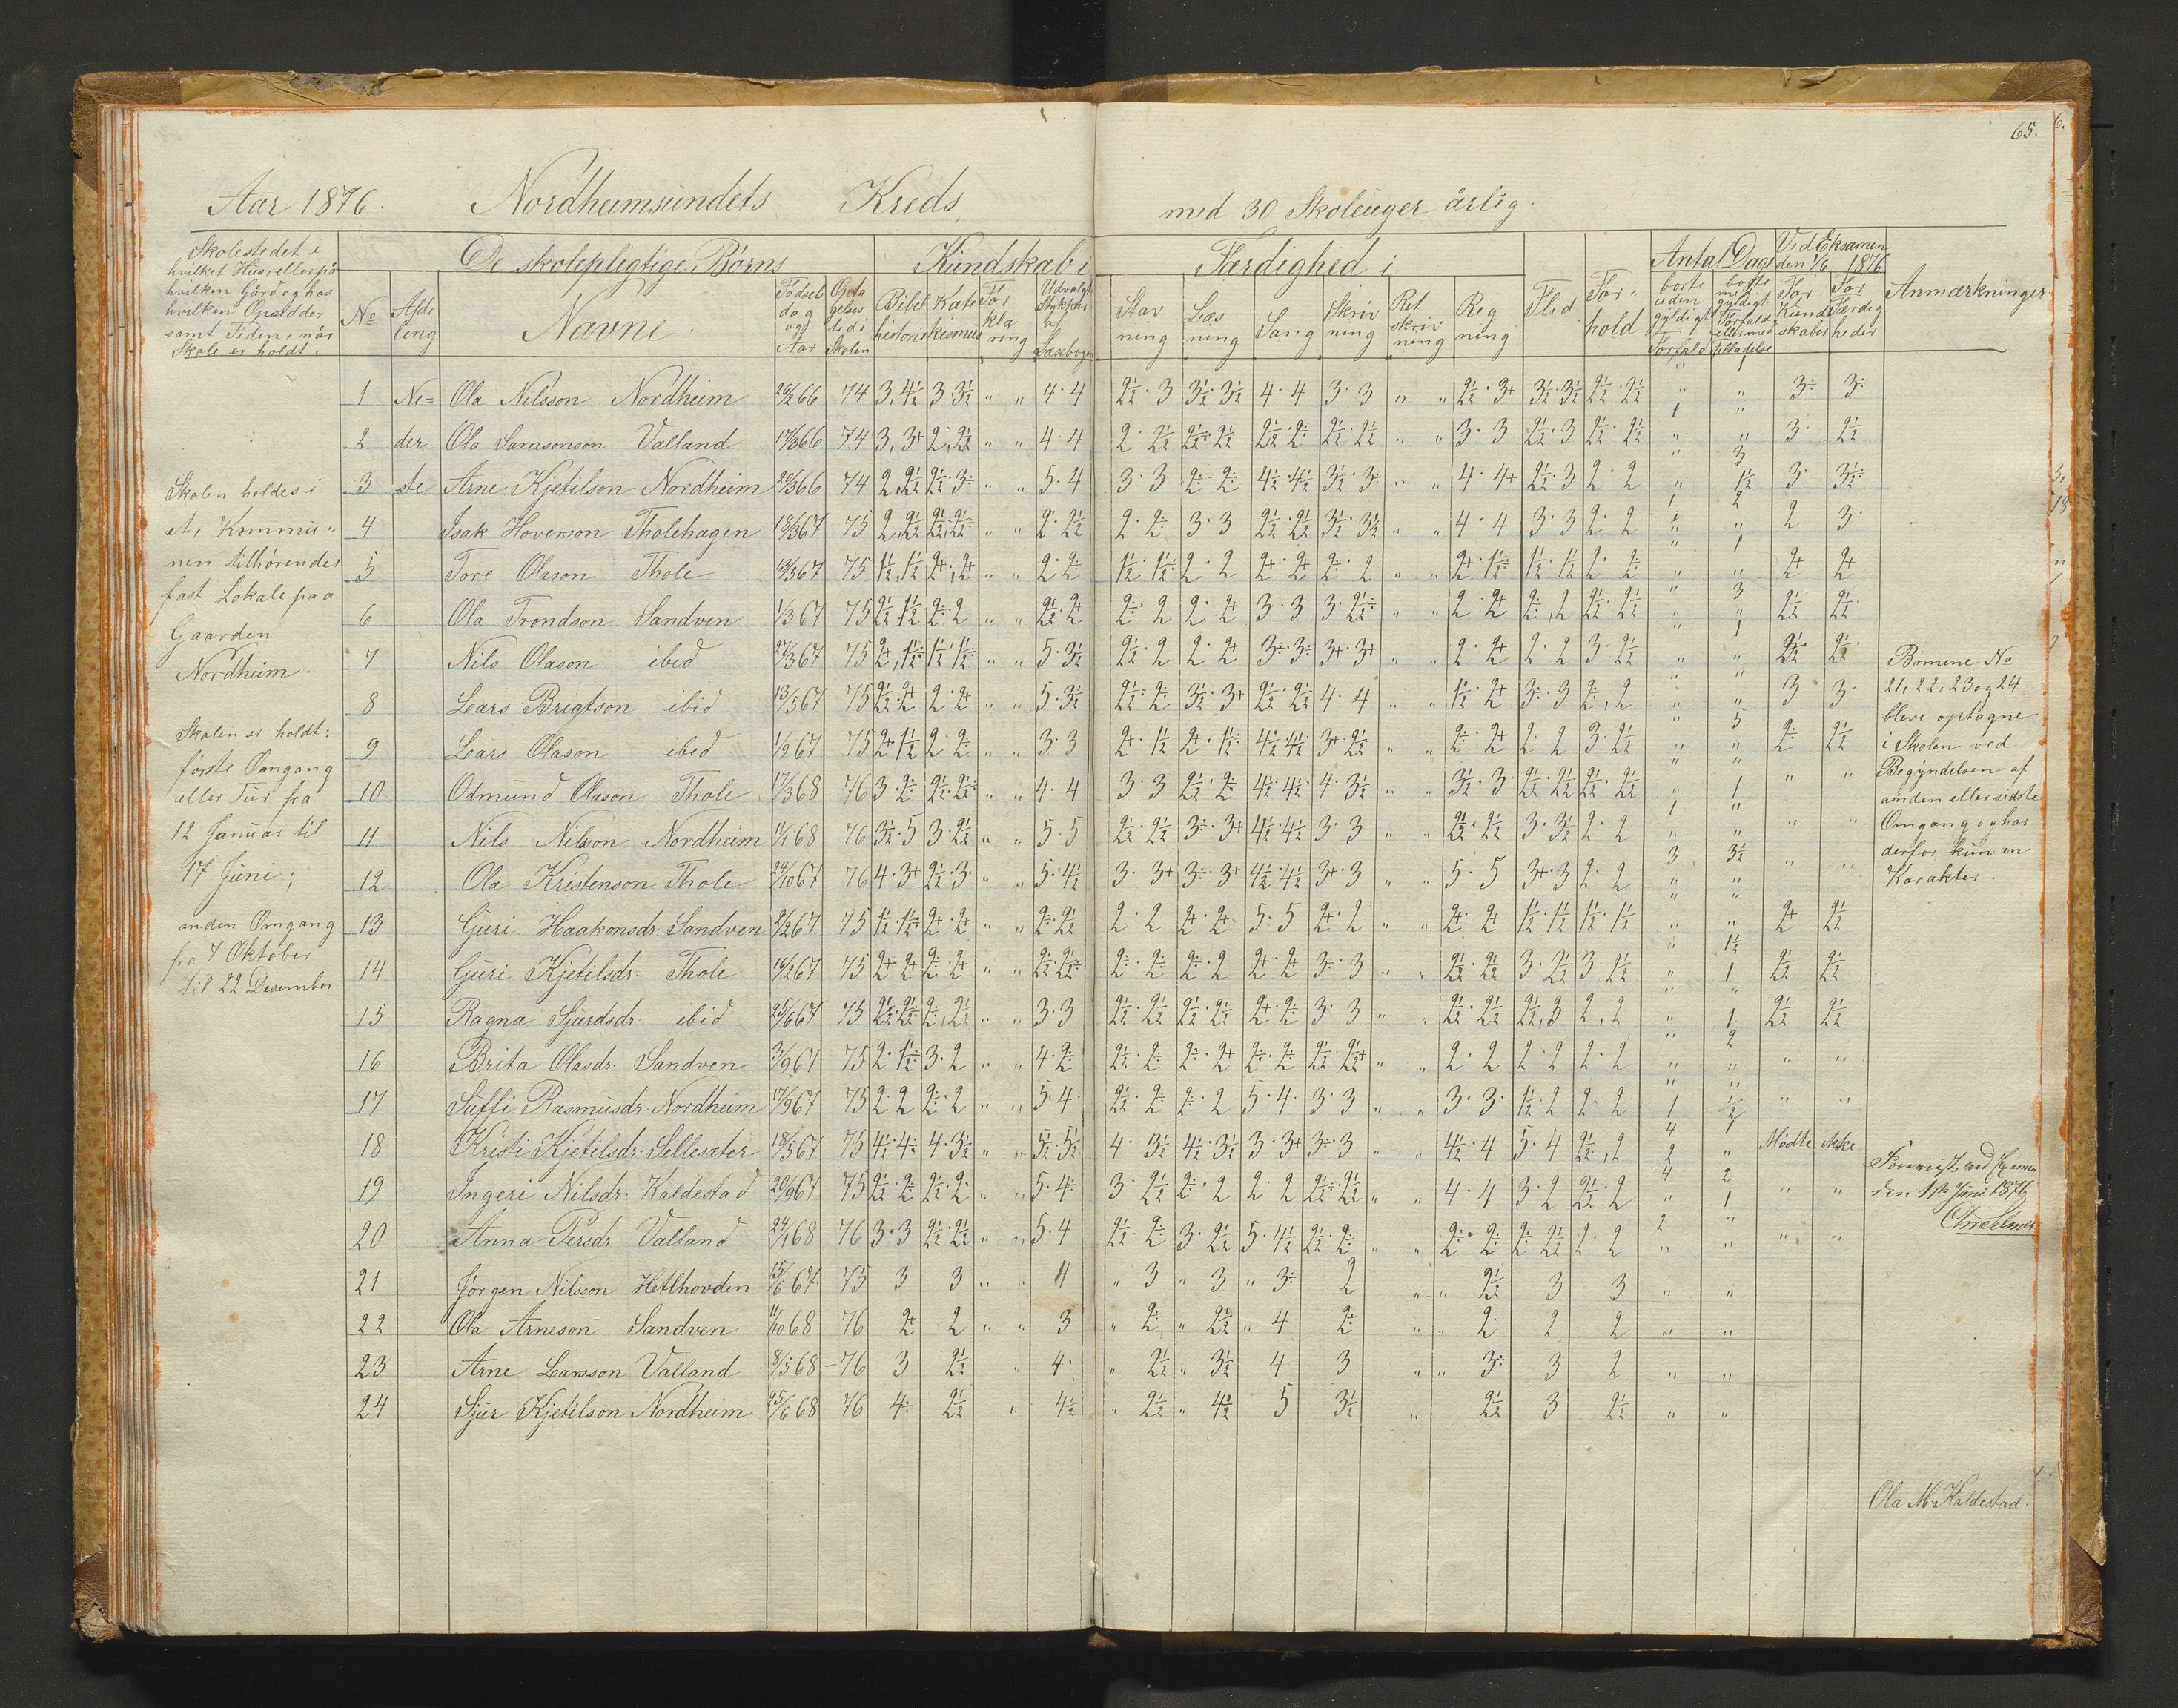 65.
Aar 1876. Nordheimsundets Kreds med 30 Skoleuger årlig.
Skolestedet i
hvilket Hus, eller på
hvilken Gård og hos
hvilken Opsidder
samt Tiden, når
Skole er holdt.
De skolepligtige Børns
Kundskab i
Færdighed i
Antal Dage
Ved Eksamen
den 1/6 1876
No
Afdeling
Navne.
Fødselsdag og Aar
Optagelsestid i Skolen
Bibelhistorie
Katekismus
Forklaring
Udvalgte Stykker af Læsebogen
Stavning
Læsning
Sang
Skrivning
Retskrivning
Regning
Flid
Forhold
borte uden gyldigt Forfald
borte med gyldigt Forfald eller med Tilladelse
For Kundskaber
For Færdigheder
Anmærkninger
1 Ne= Ola Nilsson Nordheim 66 74 3, 4½ 3·3½ " " 4·4 2½·3 3½·3½ 4·4 3·3 " " 2½·3+ 3½·3½ 2½·2½ 3÷ 3÷
2 der Ola Samsonson Valland 17/3 66 74 3, 3+ 2, 2½ " " 4·4 2·2½ 2½·2½ 2½·2÷ 2½·2½ " " 3·3 2½·3 2½·2½ 3· 2½
3 ste Arne Kjetilson Nordheim 20/3 66 74 2, 2½ 2½·3÷ " " 5·4 3·3 2÷·2÷ 4½·4½ 3½·3÷ " " 4·4+ 2½·3 2·2 3· 3½÷
4 Isak Hoverson Tholehagen 18/3 67 75 2, 2½ 2½·2½ " " 2·2½ 2·2÷ 3·3 2½·2½ 3½·3½ " " 4·4 3·3 2·2 2 3·
5 Tore Olason Thole 13/3 67 75 1½, 1½ 2+, 2+ " " 2·2÷ 1½·1½ 2·2 2+·2+ 2÷·2 " " 2+·1½÷ 1½·1½ 2·2÷ 2+ 2+
6 Ola Trondson Sandven 1/3 67 75 2½, 1½ 2÷·2 " " 2½·2+ 2÷·2 2·2+ 3·3 3·2½÷ " " 2·2+ 2÷, 2 2½·2½ 2½ 2½
7 Nils Olason ibid 27/3 67 75 2+, 1½÷ 1½·1½÷ " " 5·3½ 2½·2 2·2+ 3÷·3÷ 3+·3+ " " 2·2+ 2·2 3·2½ 2½ 2½
8 Lars Brigtson ibid 13/5 67 75 2½·2+ 2·2+ " " 5·3½ 2½÷·2÷ 3½·3+ 2½·2½ 4·4 " " 1½·2+ 3÷·3 2÷, 2 3 3·
9 Lars Olason ibid 1/9 67 75 2+·1½ 2·2÷ " " 3·3 2+·1½ 2+·1½÷ 4½·4½ 3+·2½ " " 2÷·2+ 2·2 3·2½ 2÷ 2½
10 Odmund Olason Thole 17/3 68 76 3·2÷ 2½·2½÷ " " 4·4 3·3 2½·2÷ 4½·4½ 4·3½ " " 3½·3 2½·2½ 2½·2½ " "
11 Nils Nilsson Nordheim 11/1 68 76 3½·5 3·2½ " " 5·5 2½·2½ 3÷·3+ 4½·4½ 3·3 " " 2½·2½ 3·3½ 2·2 " "
12 Ola Kristenson Thole 24/10 67 76 4·3+ 2½·3· " " 5·4½ 3·3+ 3÷·3+ 4½·4½ 3+·3 " " 5·5 3+·3 2·2 " "
13 Guri Haakonsdr. Sandven 2/2 67 75 1½·1½÷ 2+·2+ " " 2÷·2½ 2·2 2+·2+ 5·5 2+·2 " " 2+·2+ 1½·1½ 1½·1½ 2+ 2½
14 Guri Kjetilsdr. Thole 16/2 67 75 2+·2+ 2÷·2+ " " 2½·2½÷ 2÷·2÷ 2÷·2 2+·2+ 3÷·3 " " 2½·2½ 3·2½ 3·2½ 2½ 2½
15 Ragna Sjursdr. ibid 25/6 67 75 2½·2½ 2÷, 2½ " " 3·3 2½·2½ 2½·2½ 2+·2÷ 3·3 " " 2½·2½ 2½, 3 2, 2 2½ 2½
16 Brita Olasdr. Sandven 3/9 67 75 2·1½÷ 3·2 " " 4·2÷ 2½·2÷ 2÷·2+ 2÷·2÷ 2½·2½+ " " 2·2 2·2 2·2 " "
17 Suffi Rasmusdr. Nordheim 17/9 67 75 2·2 2÷·2 " " 5·4· 2½·2÷ 2÷·2 5·4· 3·3 " " 3·3· 1½·2 2·2 " "
18 Kristi Kjetilsdr. Sellesæter 18/5 67 75 4½·4÷ 4·3½ " " 5½·5½ 4·3½ 4½·3½ 3·3+ 3÷·3 " " 4½·4 5·4 2½, 2 Mødte ikke
19 Ingeri Nilsdr. Kaldestad 20/9 67 75 2½·2÷ 2½·2÷ " " 5·4· 3·2½ 2÷·2 2·2 2½·2½ " " 4·4 3·2 2½·2 " "
20 Anna Persdr Valland 24/1 68 76 3·3 2½·2½ " " 5·4 2½·2÷ 3·2½ 5·4½ 2½·2÷ " " 2÷·2÷ 2÷·2½ 2·2 " "
21 Jørgen Nilsson Hetlhovden 15/6 67 75 3 3 " " 4 " 3 " 3 " 3÷ 2 " " 2½ 3 3 " "
22 Ola Arneson Sandven 11/10 68 76 2+ 2 " " 3 " 2÷ " 2½ " 4 2÷ " " 2 2 2 " "
23 Arne Larsson Valland 8/5 68 76 3 2½ " 4· " 2½ " 3½ 4 3 " " 3÷ 3 2 " "
24 Sjur Kjetilson Nordheim 25/6 68 76 4÷ 2½ " 4½ " 2½ " 4½ 5 3½ " 2½ 3 2½ " "
Skolen holdes i
et, Kommu-
nen tilhørende
fast Lokale paa
Gaarden
Nordheim.
Skolen er holdt:
første Omgang
eller Tur fra
12 Januar til
17 Juni;
anden Omgang
fra 7 Oktober
til 22 Desember.
Børnene No
21, 22, 23 og 24
bleve optagne
i Skolen ved
Begyndelsen af
anden eller sidste
Omgang og har
derfor kun en
Karakter.
Forevist ved Examen
den 1ste Juni 1876
Ola M. Kaldestad.